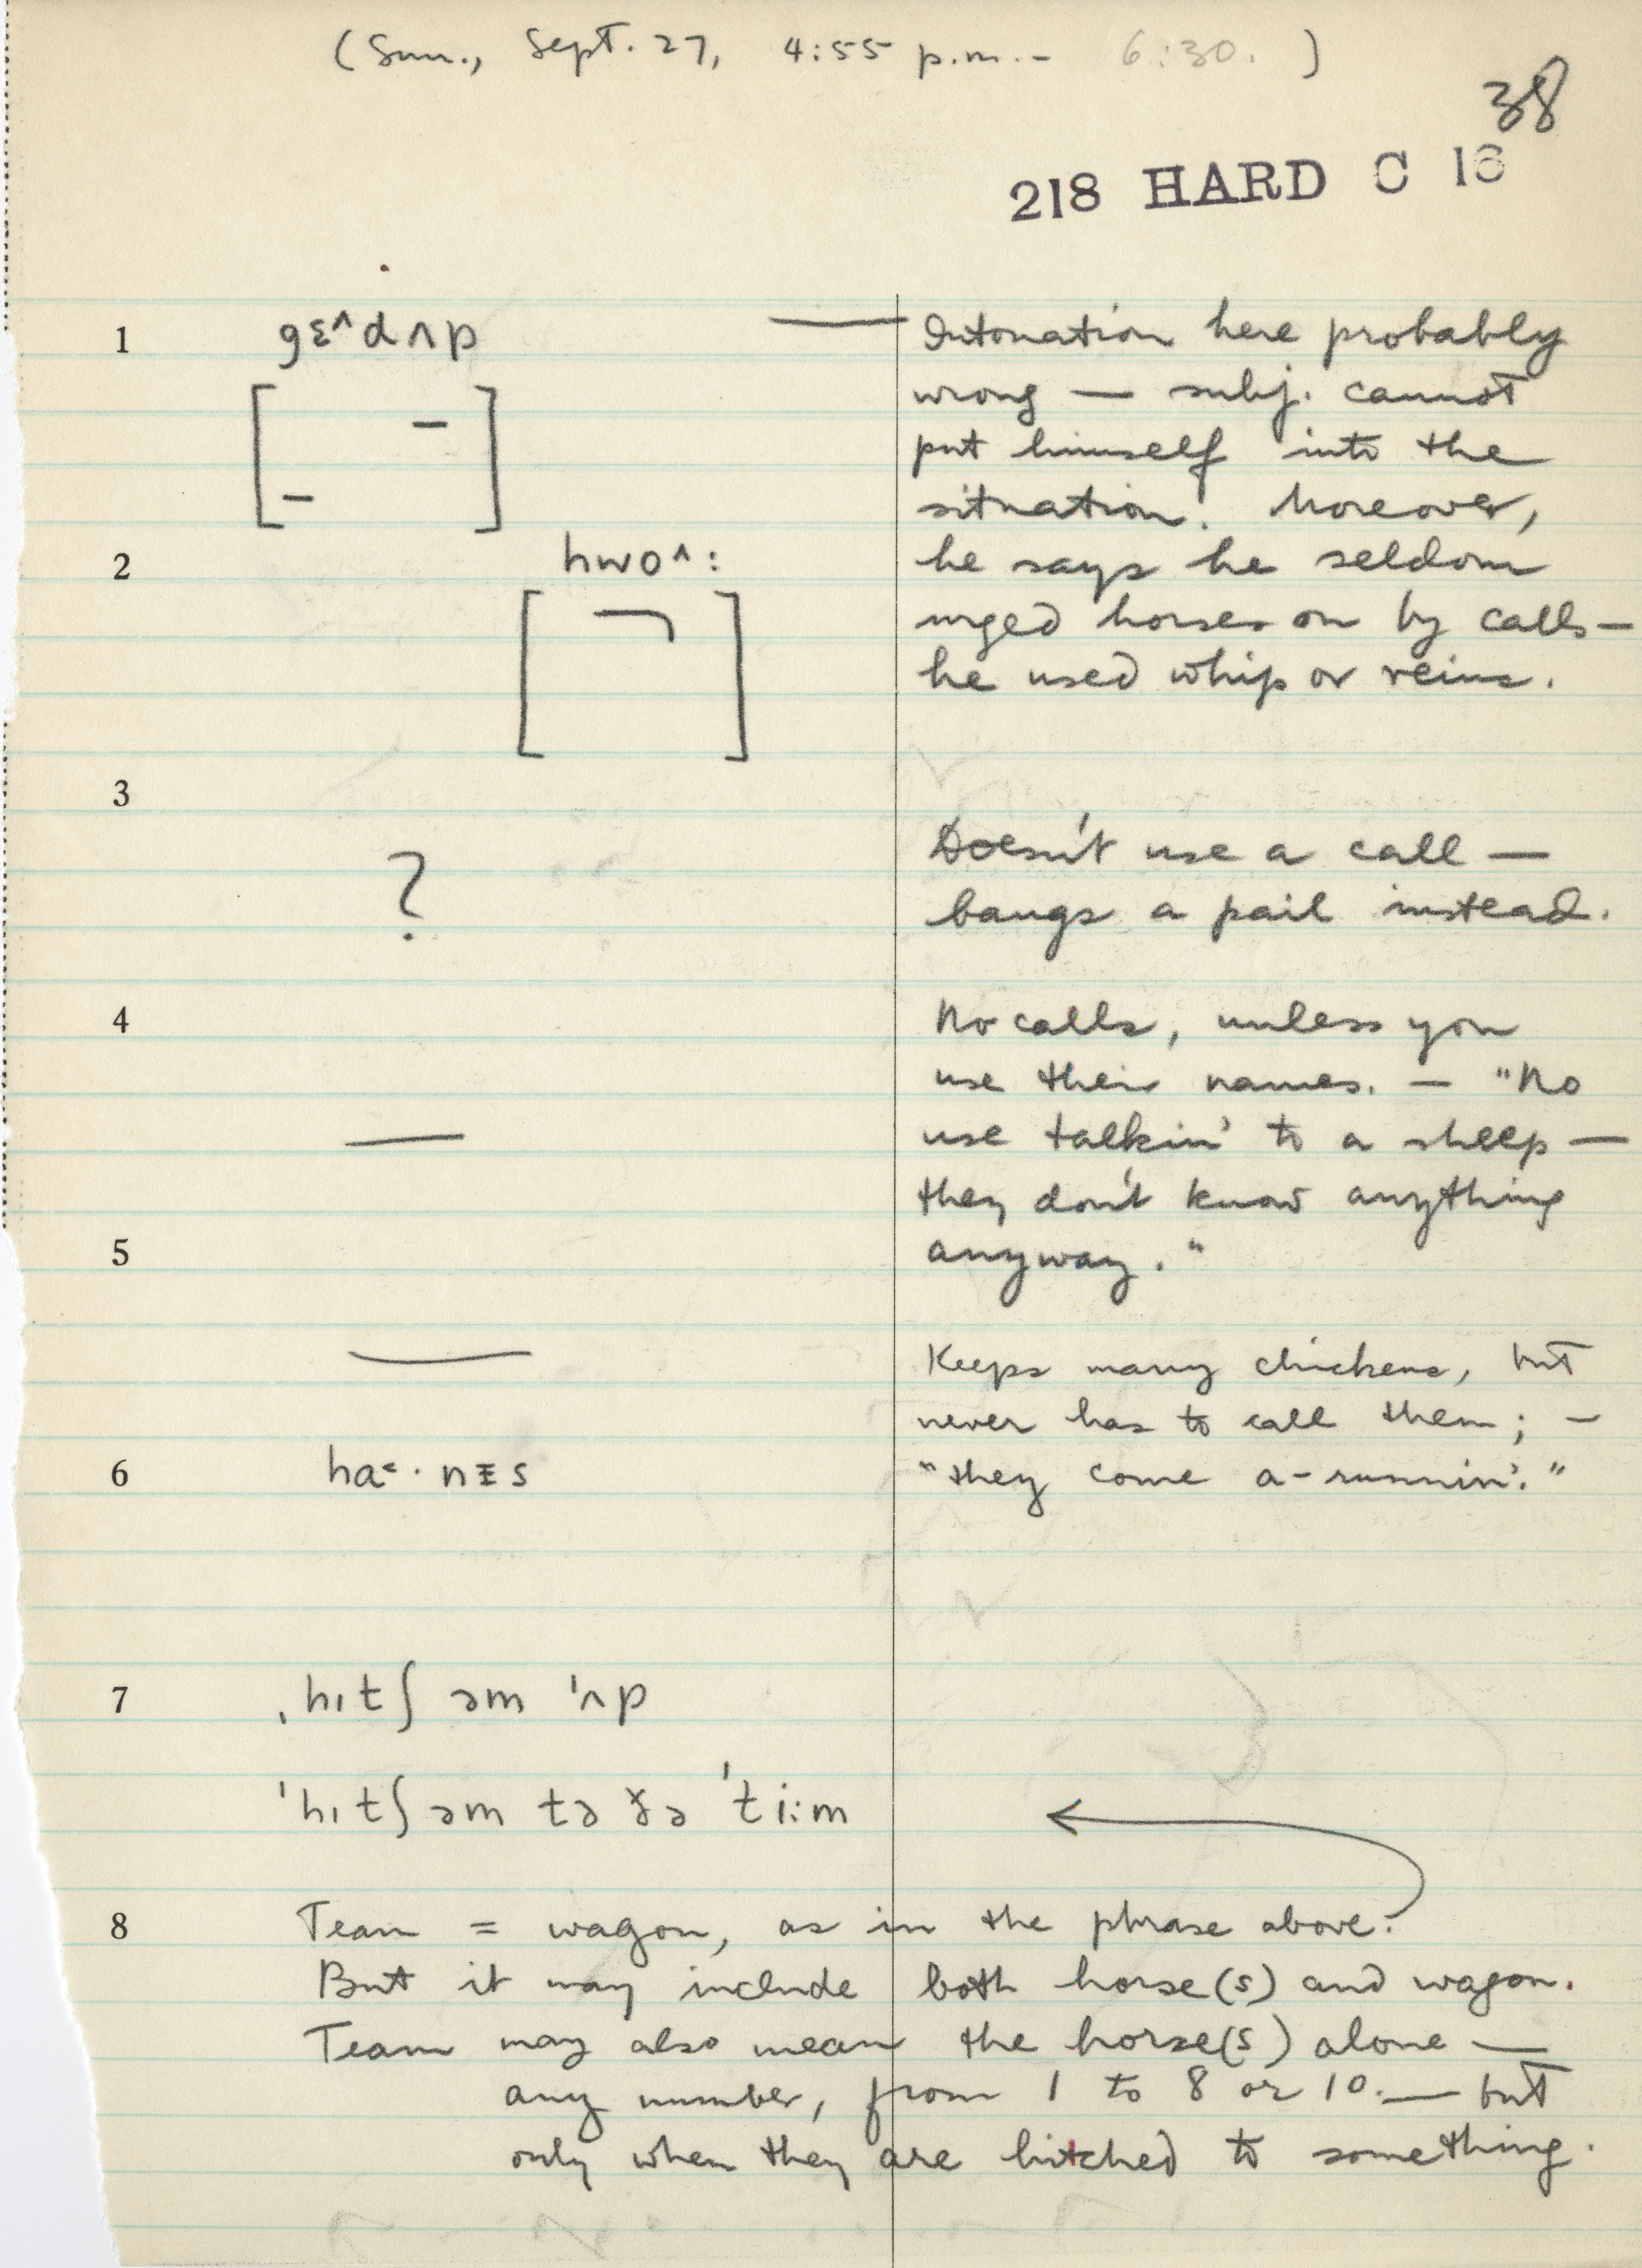 (Sun., Sept. 27, 4:55 p.m. - 6:30. )
38
218 HARD C 16
1 gɛ^dʌp — Intonation here probably
wrong — subj. cannot
put himself into the
situation. Moreover,
2 hwo^: he says he seldom
urged horses on by calls —
he used whip or reins.
3
? Doesn't use a call —
bangs a pail instead.
4 No calls, unless you
use their names. — "No
— use talkin' to a sheep —
they don't know anything
5 anyway."
— Keeps many chickens, but
never has to call them; —
6 ha˂·nɪs "they come a-runnin'."
7 ˌhɪtʃ əm ˈʌp
ˈhɪtʃ əm tə ðə ˈti:m ←
8 Team = wagon, as in the phrase above.
But it may include both horse(s) and wagon.
Team may also mean the horse(s) alone —
any number, from 1 to 8 or 10. — but
only when they are hitched to something.